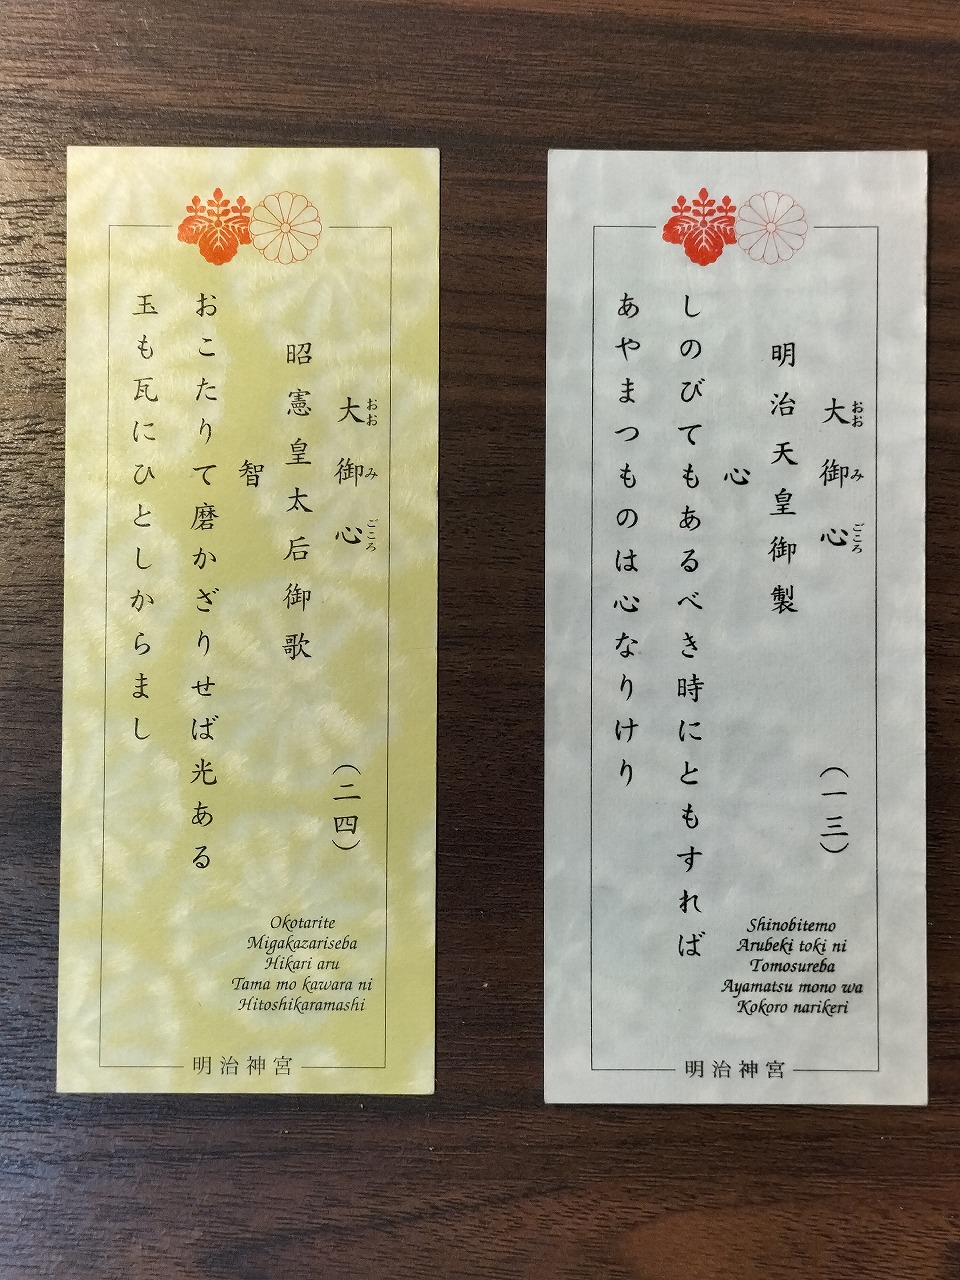 大御心
おおみごころ
（二四）
昭憲皇太后御歌
智
おこたりて磨かざりせば光ある
玉も瓦にひとしからまし
Okotarite
Migakazariseba
Hikari aru
Tama mo kawara ni
Hitoshikaramashi
明治神宮
大御心
おおみごころ
（一三）
明治天皇御製
心
しのびてもあるべき時にともすれば
あやまつものは心なりけり
Shinobitemo
Arubeki toki ni
Tomosureba
Ayamatsu mono wa
Kokoro narikeri
明治神宮